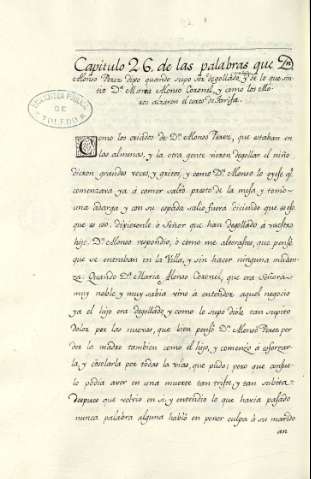 Capitulo 26. de las palabras que Dn
Alonso Perez dixo quando supo ser degollado, y de lo que sin-
tio Da. Maria Alonso Coronel, y como los Mo-
ros alzaron el cerco de Tarifa.
BIBLIOTECA PUBLICA
DE
TOLEDO
Como los criados de Dn. Alonso Perez, que estaban en
las almenas, y la otra gente vieron degollar el niño
dieron grandes voces, y gritos, y como Dn. Alonso lo oyese qe.
comenzaria ya a comer salió presto de la mesa y tomó
una adarga y con su espada salio fuera diciendo que qe es
que es eso. dixeronle ó Señor que han degollado a vuestro
hijo. Dn. Alonso respondio, ó como me alterastes, que pensé
que se entraban en la Villa, y sin hacer ninguna mudan-
za Quando Da. Maria Alonso Coronel, que era Señora
muy noble y muy sabia vino á entender aquel negocio
ya el hijo era degollado, y como lo supo diole tan supito
dolor por las nuevas, que bien pensó Dn. Alonso Perez per
der la madre tambien como el hijo, y comenzó á esforzar-
la, y consolarla por todas la vias, que pudo; pero que consue-
lo podia aver en una muerte tan triste, y tan subita-
despues que volvio en si, y entendio lo que havia pasado
nunca palabra alguna habló en poner culpa á su marido
an